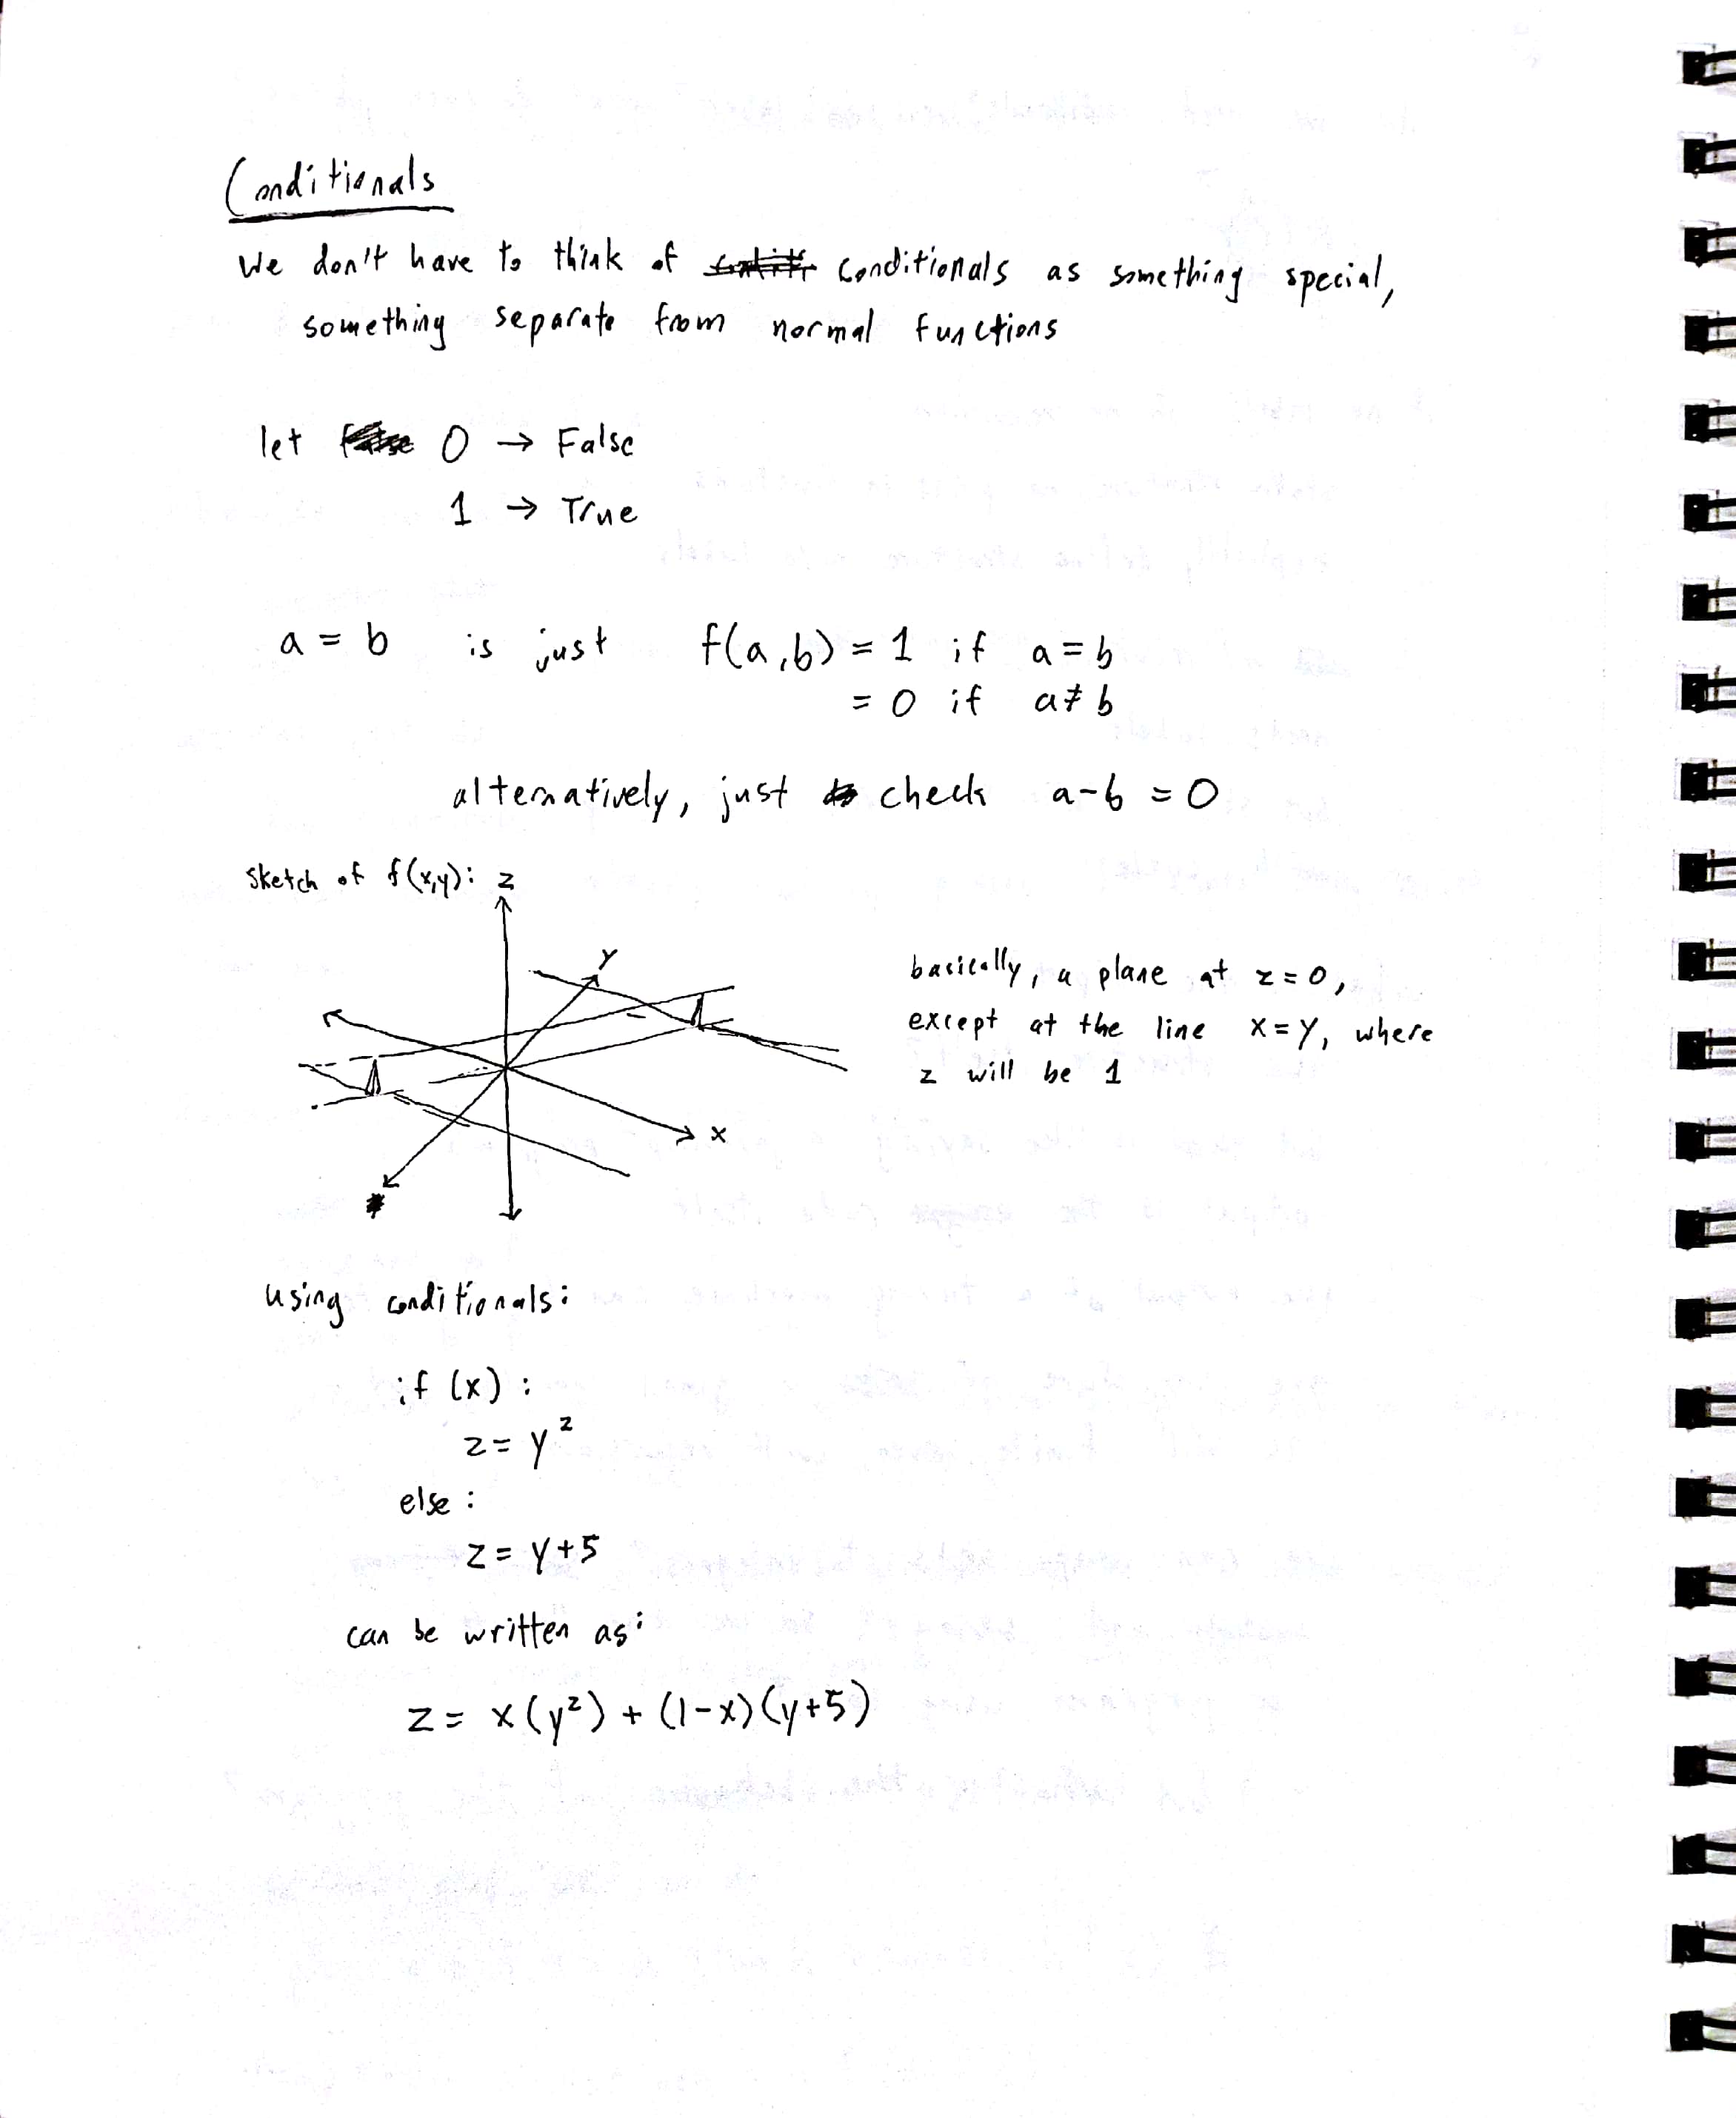 Conditionals
We don't have to think of conditionals as something special,
something separate from normal functions
let 0 → False
1 → True
a = b is just f(a,b) = 1 if a = b
= 0 if a ≠ b
alternatively, just check a-b = 0
sketch of f(x,y): z
y
x
basically, a plane at z=0,
except at the line x=y, where
z will be 1
using conditionals:
if (x) :
z = y²
else :
z = y+5
can be written as:
z = x(y²) + (1-x)(y+5)